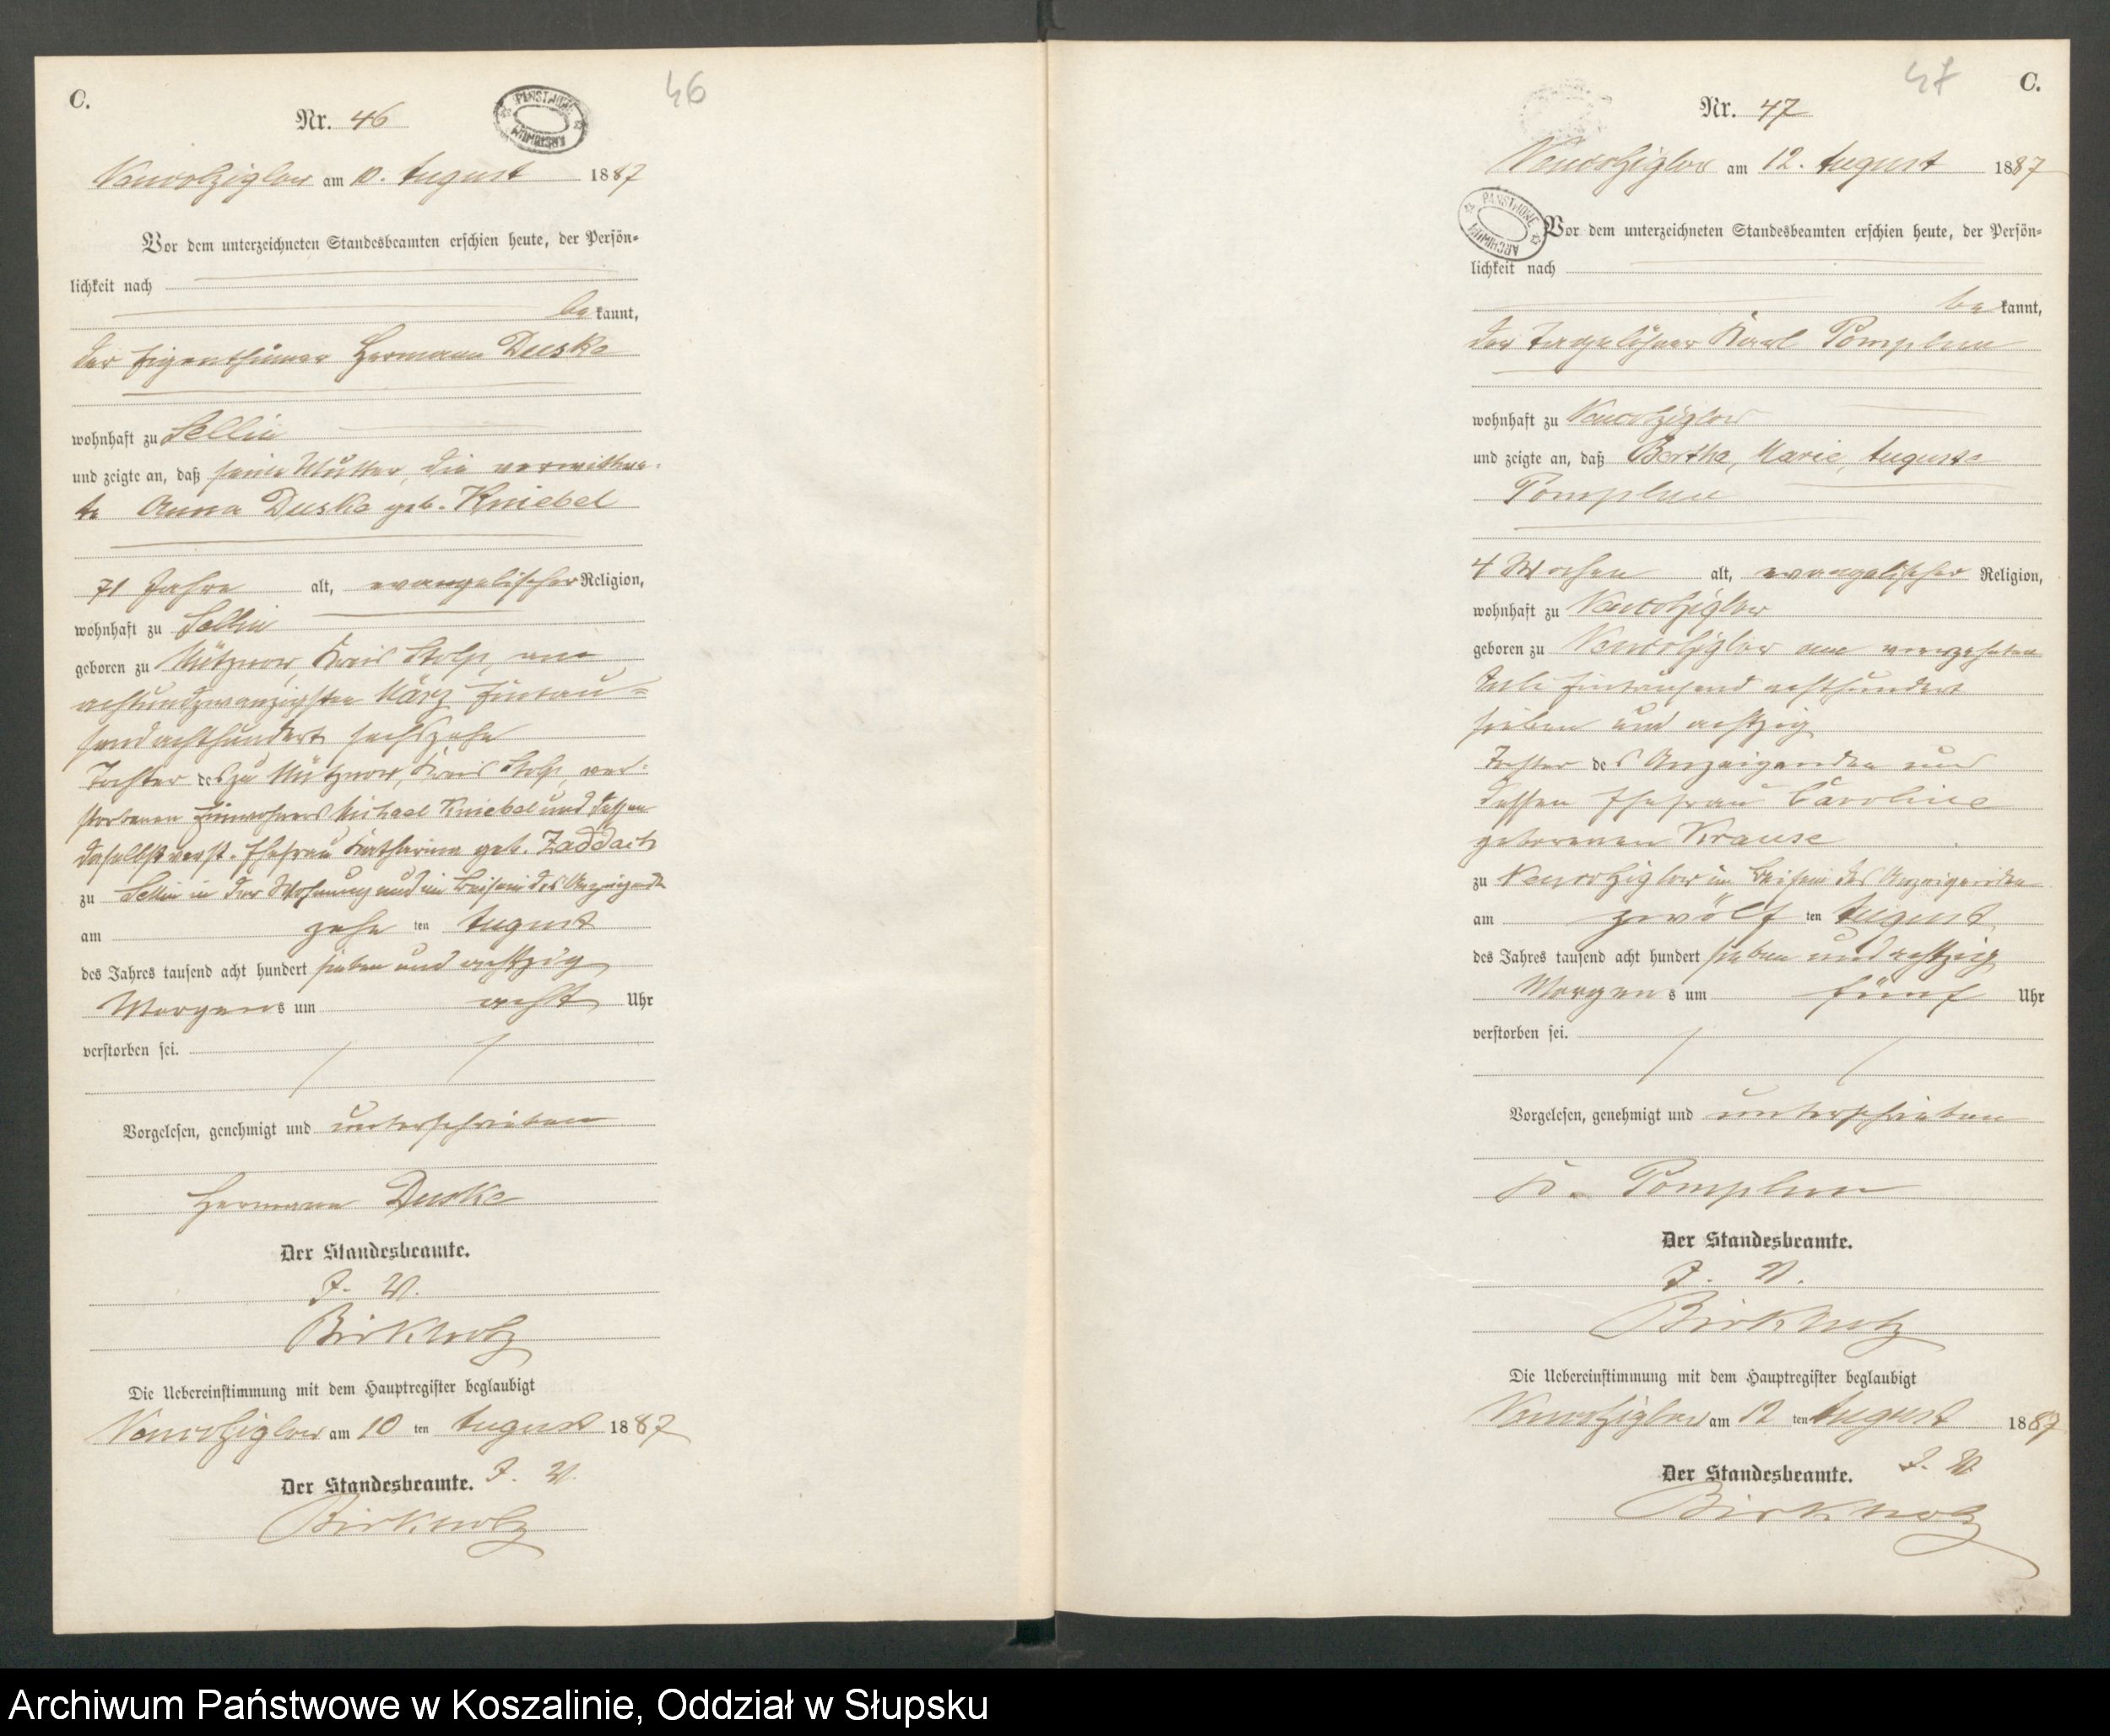 C.
46
Nr. 46
PAŃSTWOWE ARCHIWUM
am 10. August 1887
Vor dem unterzeichneten Standesbeamten erschien heute, der Persön-
lichkeit nach
be kannt,
der Eigenthümer Hermann Duske
wohnhaft zu Sellin
und zeigte an, daß seine Mutter, die verwittwe-
te Anna Duske geb. Kniebel
71 Jahre alt, evangelischer Religion,
wohnhaft zu Sellin
geboren zu Mützenow, Kreis Stolp, am
achtundzwanzigsten März Eintau-
sendachthundert sechszehn
Tochter des zu Mützenow, Kreis Stolp, ver-
storbenen Einwohners Michael Kniebel und dessen
daselbst verst. Ehefrau Katharina geb. Zaddach
zu Sellin in der Wohnung und im Beisein des Anzeigenden
am zehn ten August
des Jahres tausend acht hundert sieben und achtzig
Morgens um acht Uhr
verstorben sei.
Vorgelesen, genehmigt und unterschrieben
Hermann Duske
Der Standesbeamte.
J. V.
Birkholz
Die Uebereinstimmung mit dem Hauptregister beglaubigt
am 10 ten August 1887
Der Standesbeamte. J. V.
Birkholz
47
C.
Nr. 47
am 12. August 1887
PAŃSTWOWE ARCHIWUM
Vor dem unterzeichneten Standesbeamten erschien heute, der Persön-
lichkeit nach
be kannt,
der Tagelöhner Karl Pomplun
wohnhaft zu
und zeigte an, daß Bertha, Marie, Auguste
Pomplun
4 Wochen alt, evangelischer Religion,
wohnhaft zu
geboren zu am vierzehnten
Juli Eintausend achthundert
sieben und achtzig
Tochter des Anzeigenden und
dessen Ehefrau Caroline
geborenen Krause
zu im Beisein des Anzeigenden
am zwölf ten August
des Jahres tausend acht hundert sieben und achtzig
Morgens um fünf Uhr
verstorben sei.
Vorgelesen, genehmigt und unterschrieben
K. Pomplun
Der Standesbeamte.
J. V.
Birkholz
Die Uebereinstimmung mit dem Hauptregister beglaubigt
am 12 ten August 1887
Der Standesbeamte. J. V.
Birkholz
Archiwum Państwowe w Koszalinie, Oddział w Słupsku